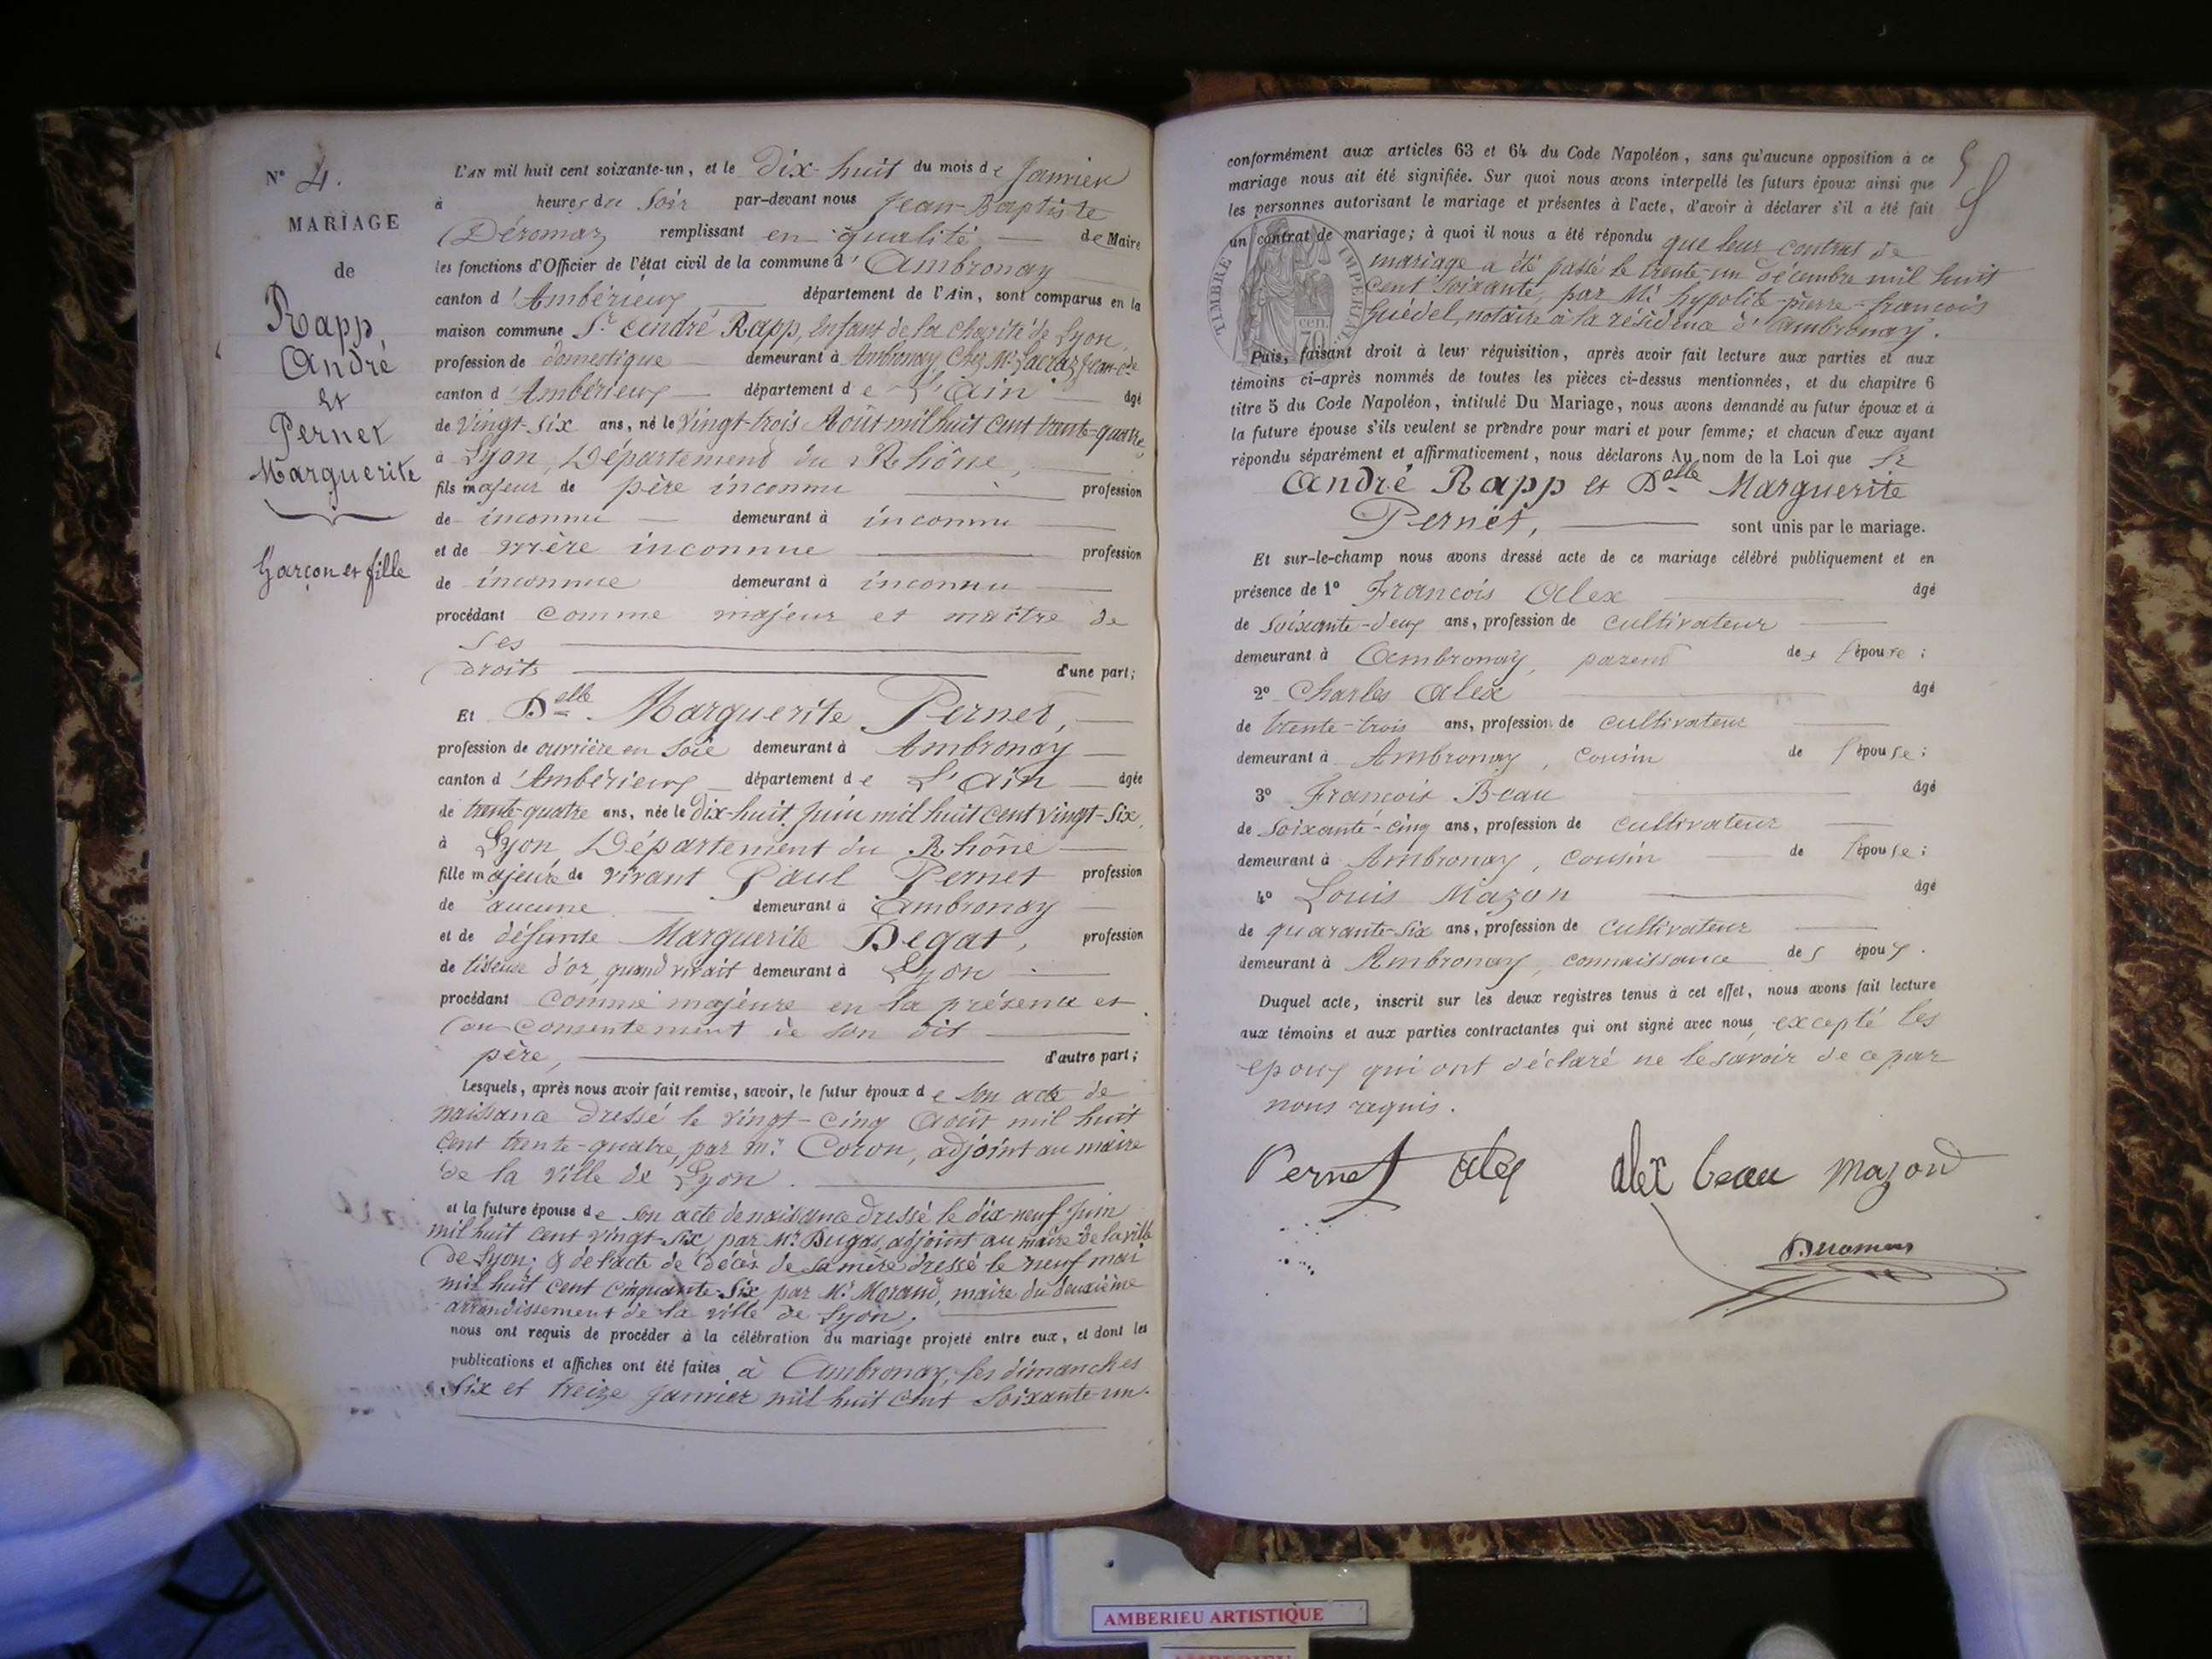 N° 4.
MARIAGE
de
Rapp
André
et
Pernet
Marguerite
Garçon et fille
L'AN mil huit cent soixante-un, et le Dix-huit du mois de Janvier
à heures du Soir par-devant nous Jean-Baptiste
Déromaz remplissant en qualité de Maire
les fonctions d'Officier de l'état civil de la commune d'Ambronay
canton d'Ambérieux département de l'Ain, sont comparus en la
maison commune Sr André Rapp, Enfant de la Charité de Lyon,
profession de domestique demeurant à Ambronay Chez Mr
canton d'Ambérieux département de L'Ain âgé
de Vingt-Six ans, né le Vingt-trois Août mil huit Cent trente-quatre,
à Lyon, Département du Rhône,
fils majeur de père inconnu profession
de inconnu demeurant à inconnu
et de mère inconnue profession
de inconnue demeurant à inconnu
procédant comme majeur et maître de
Ses
droits d'une part;
Et Delle Marguerite Pernet,
profession de ouvrière en Soie demeurant à Ambronay
canton d'Ambérieux département de L'Ain âgée
de trente-quatre ans, née le Dix-huit Juin mil huit Cent Vingt-Six,
à Lyon Département du Rhône
fille majeure de vivant Paul Pernet profession
de aucune demeurant à Ambronay
et de défunte Marguerite Degat, profession
de tiseuse d'or, quand vivait demeurant à Lyon
procédant Comme majeure en la présence et
au Consentement de Son dit
père, d'autre part;
Lesquels, après nous avoir fait remise, savoir, le futur époux de Son acte de
naissance Dressé le Vingt-Cinq Août mil huit
Cent trente-quatre, par Mr Coron, adjoint au maire
de la Ville de Lyon.
et la future épouse de Son acte de naissance Dressé le dix-neuf Juin
mil huit Cent Vingt-Six par Mr Dugas adjoint au maire de la ville
de Lyon; & de l'acte de Décès de Sa mère dressé le neuf mai
mil huit Cent Cinquante-Six par Mr Morand, maire du deuxième
arrondissement de la ville de Lyon,
nous ont requis de procéder à la célébration du mariage projeté entre eux, et dont les
publications et affiches ont été faites à Ambronay, les dimanches
Six et treize Janvier mil huit Cent Soixante-un.
conformément aux articles 63 et 64 du Code Napoléon, sans qu'aucune opposition à ce
mariage nous ait été signifiée. Sur quoi nous avons interpellé les futurs époux ainsi que
les personnes autorisant le mariage et présentes à l'acte, d'avoir à déclarer s'il a été fait
un contrat de mariage; à quoi il nous a été répondu que leur contrat de
mariage a été passé le trente-un décembre mil huit
Cent Soixante, par Me hypolite-pierre-françois
notaire à la résidence d'Ambronay.
TIMBRE IMPÉRIAL
cen.
70
Puis, faisant droit à leur réquisition, après avoir fait lecture aux parties et aux
témoins ci-après nommés de toutes les pièces ci-dessus mentionnées, et du chapitre 6
titre 5 du Code Napoléon, intitulé Du Mariage, nous avons demandé au futur époux et à
la future épouse s'ils veulent se prendre pour mari et pour femme; et chacun d'eux ayant
répondu séparément et affirmativement, nous déclarons Au nom de la Loi que Sr
André Rapp et Delle Marguerite
Pernet, sont unis par le mariage.
Et sur-le-champ nous avons dressé acte de ce mariage célébré publiquement et en
présence de 1° François Alex âgé
de Soixante-deux ans, profession de Cultivateur
demeurant à Ambronay, parent de l'épouse;
2° Charles Alex âgé
de trente-trois ans, profession de cultivateur
demeurant à Ambronay, Cousin de l'épouse;
3° François Beau âgé
de Soixante-cinq ans, profession de Cultivateur
demeurant à Ambronay, Cousin de l'épouse;
4° Louis Mazon âgé
de quarante-six ans, profession de Cultivateur
demeurant à Ambronay, connaissance des époux.
Duquel acte, inscrit sur les deux registres tenus à cet effet, nous avons fait lecture
aux témoins et aux parties contractantes qui ont signé avec nous excepté les
époux qui ont déclaré ne le savoir de ce par
nous requis.
Pernet alex alex beau mazond
Deromas
AMBERIEU ARTISTIQUE
AMBERIEU